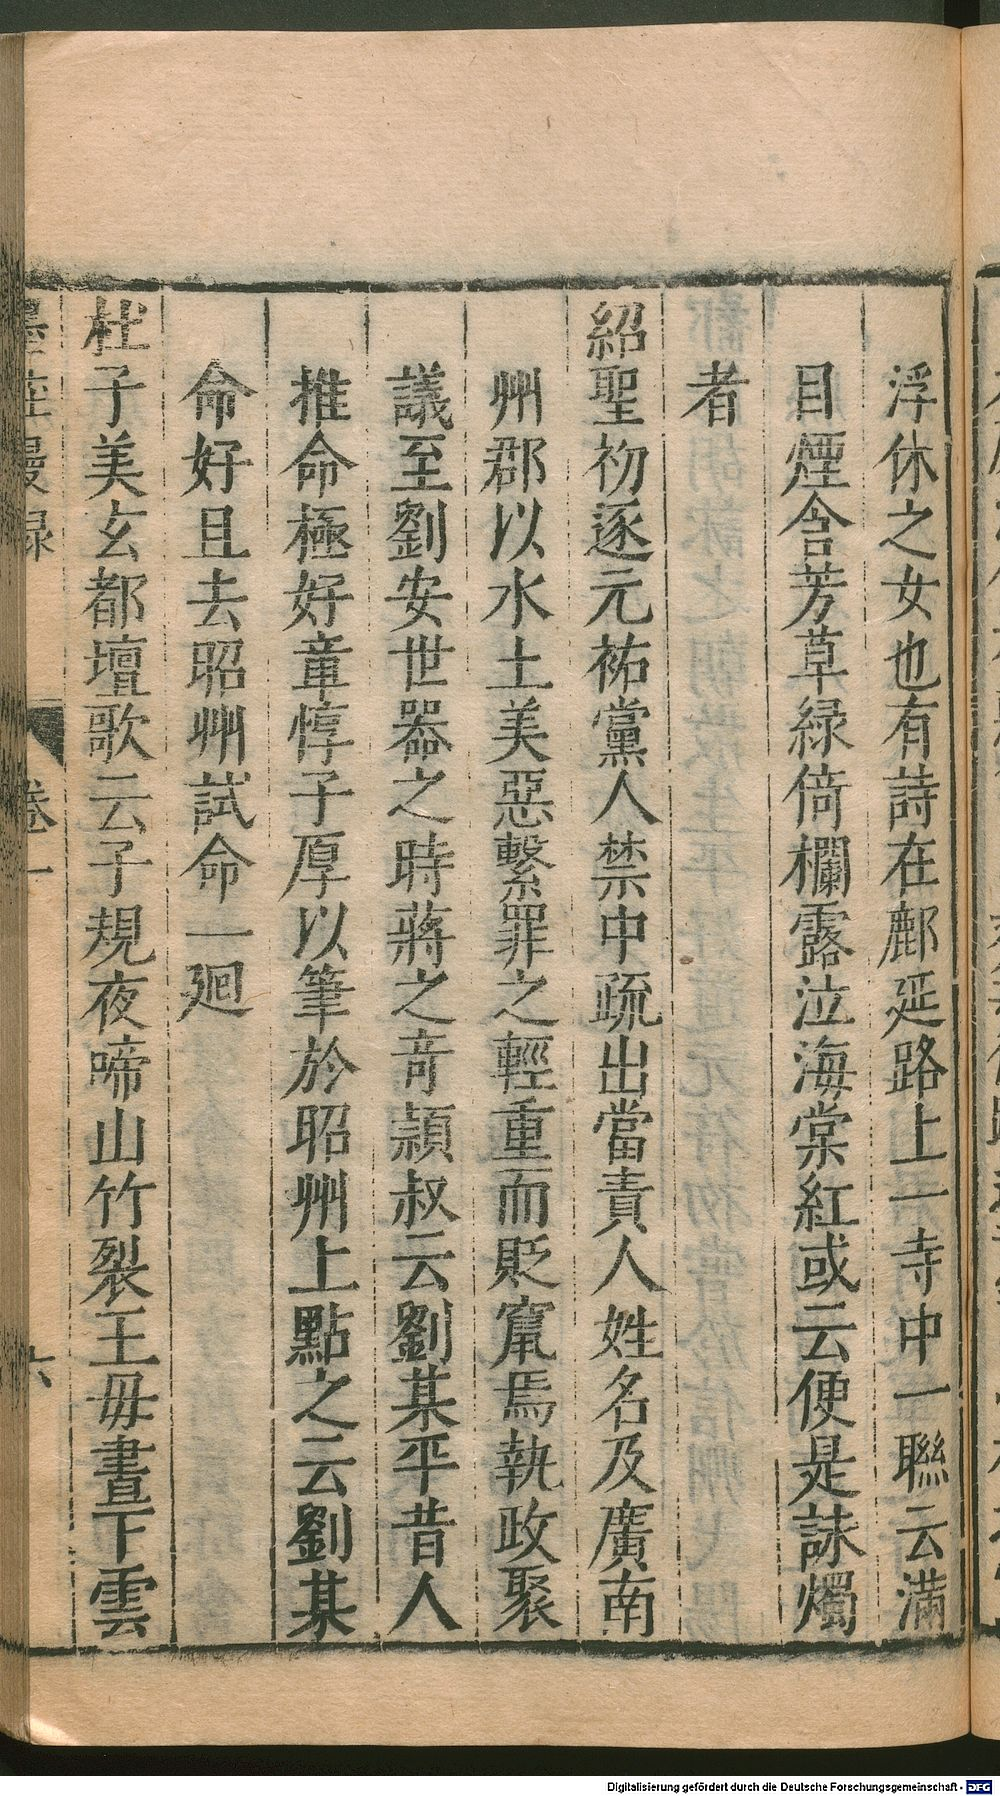 浮休之女也有詩在鄜延路上一寺中一聯云滿
目煙含芳草綠倚欄露泣海棠紅或云便是詠燭
者
紹聖初逐元祐黨人禁中疏出當責人姓名及廣南
州郡以水土美惡繫罪之輕重而貶竄焉執政聚
議至劉安世器之時蔣之竒頴叔云劉某平昔人
推命極好章惇子厚以筆於昭州上點之云劉某
命好且去昭州試命一廻
杜子美玄都壇歌云子規夜啼山竹裂王毋晝下雲
墨莊漫録 卷一 六
Digitalisierung gefördert durch die Deutsche Forschungsgemeinschaft - DFG